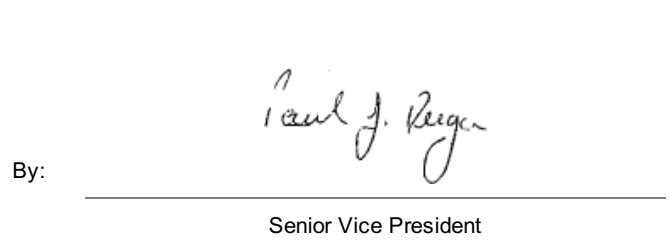 Paul J.
By:
Senior Vice President